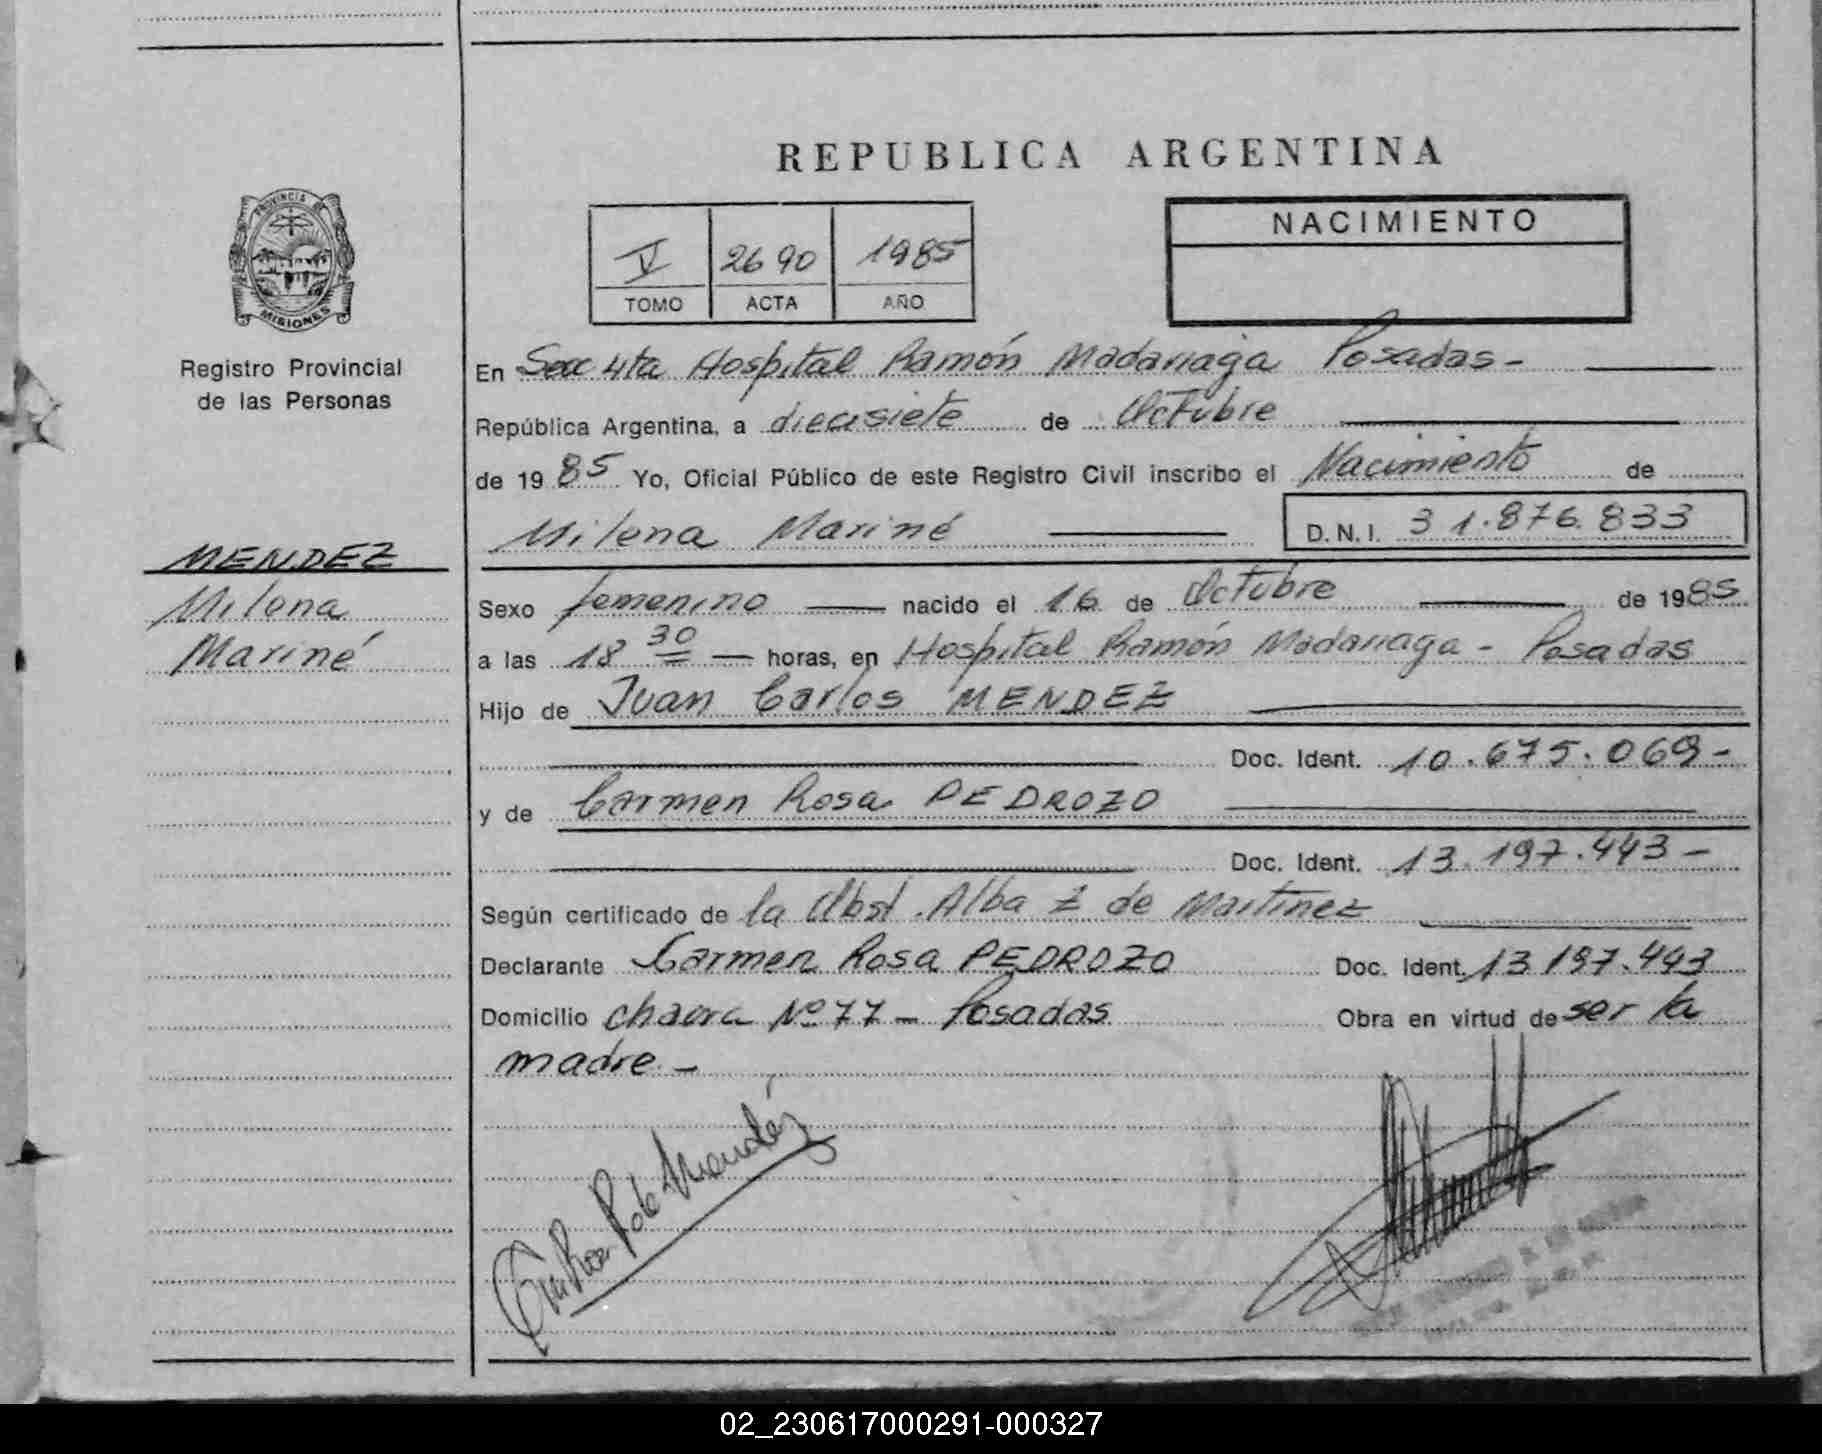 REPUBLICA ARGENTINA
PROVINCIA DE
MISIONES
Registro Provincial
de las Personas
V 2690 1985
TOMO ACTA AÑO
NACIMIENTO
En Secc 4ta Hospital Ramón Madariaga Posadas -
República Argentina, a diecisiete de Octubre
de 1985 Yo, Oficial Público de este Registro Civil inscribo el Nacimiento de
Milena Mariné D.N.I. 31.876.833
MENDEZ
Milena
Mariné
Sexo femenino nacido el 16 de Octubre de 1985
a las 18 30 horas, en Hospital Ramón Madariaga - Posadas
Hijo de Juan Carlos MENDEZ
Doc. Ident. 10.675.069-
y de Carmen Rosa PEDROZO
Doc. Ident. 13.197.443-
Según certificado de la Obst. Alba Z de Martinez
Declarante Carmen Rosa PEDROZO Doc. Ident. 13 197.443
Domicilio chacra Nº 77 - Posadas Obra en virtud de ser la
madre.-
R de Mendéz
02_230617000291-000327